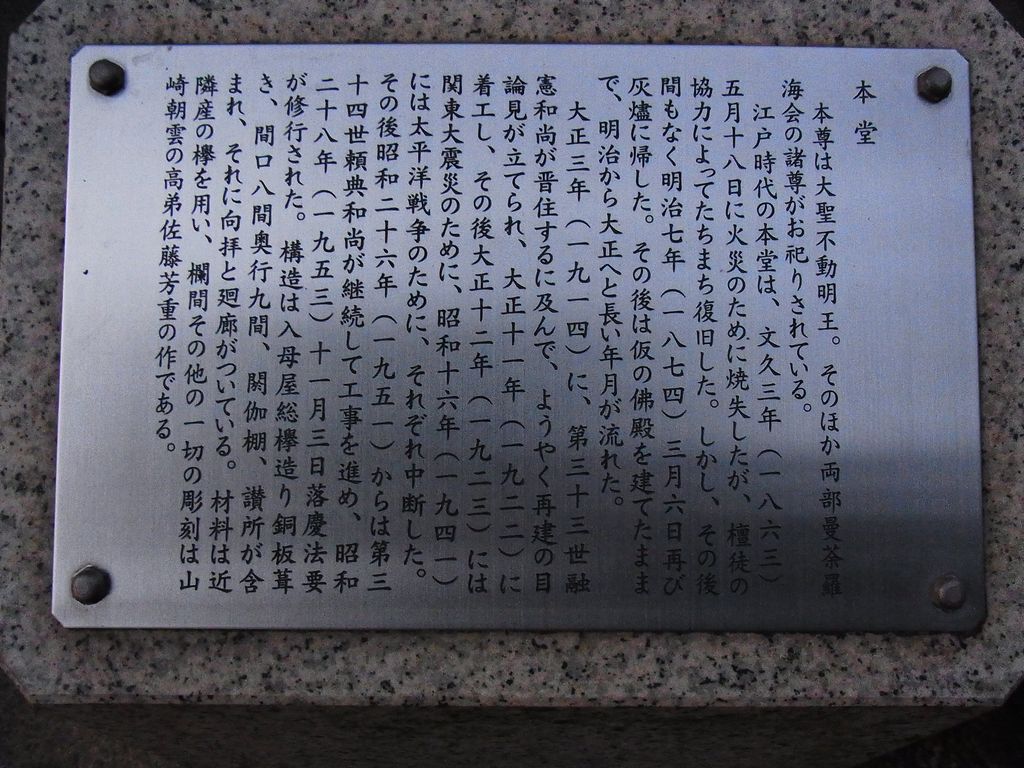 本堂
本尊は大聖不動明王。そのほか両部曼荼羅
海会の諸尊がお祀りされている。
江戸時代の本堂は、文久三年（一八六三）
五月十八日に火災のために焼失したが、檀徒の
協力によってたちまち復旧した。しかし、その後
間もなく明治七年（一八七四）三月六日再び
灰燼に帰した。その後は仮の佛殿を建てたまま
で、明治から大正へと長い年月が流れた。
大正三年（一九一四）に、第三十三世融
憲和尚が晋住するに及んで、ようやく再建の目
論見が立てられ、大正十一年（一九二二）に
着工し、その後大正十二年（一九二三）には
関東大震災のために、昭和十六年（一九四一）
には太平洋戦争のために、それぞれ中断した。
その後昭和二十六年（一九五一）からは第三
十四世頼典和尚が継続して工事を進め、昭和
二十八年（一九五三）十一月三日落慶法要
が修行された。構造は入母屋総欅造り銅板葺
き、間口八間奥行九間、閼伽棚、讃所が含
まれ、それに向拝と廻廊がついている。材料は近
隣産の欅を用い、欄間その他の一切の彫刻は山
崎朝雲の高弟佐藤芳重の作である。